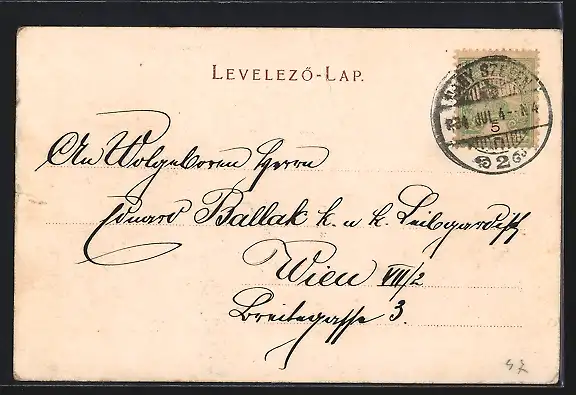 LEVELEZŐ-LAP.
NAGY SZEBEN
JUL. 4
5
2
An Wolgeboren Herrn
Eduard Ballak k. u k. Leibgardist
Wien VII/2
Breitegasse 3.
47